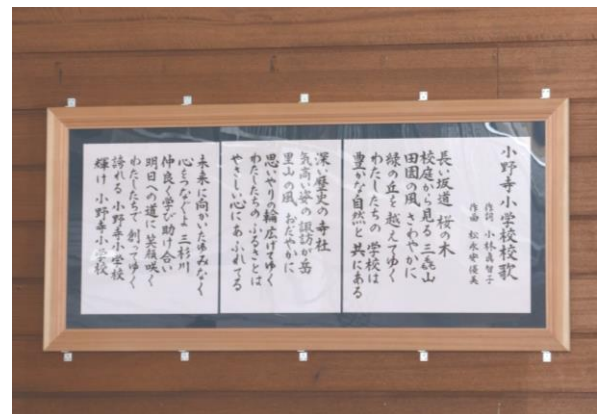 小野寺小学校校歌
作詞 小林真智子
作曲 松永安優美
長い坂道 桜の木
校庭から見る 三毳山
田園の風 さわやかに
緑の丘を 越えてゆく
わたしたちの 学校は
豊かな自然と 共にある
深い歴史の 寺社
気高い姿の 諏訪が岳
里山の風 おだやかに
思いやりの輪 広げてゆく
わたしたちの ふるさとは
やさしい心に あふれてる
未来に向かい たゆみなく
心をつなぐよ 三杉川
仲良く学び 助け合い
明日への道に 笑顔咲く
わたしたちで 創ってゆく
誇れる 小野寺小学校
輝け 小野寺小学校